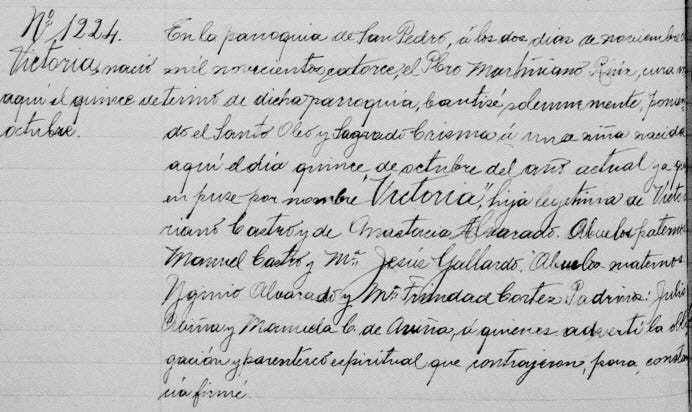 Nº 1224.
Victoria, nació
aquí el quince de
octubre.
En la parroquia de San Pedro, á los dos dias de noviembre
mil novecientos catorce, el Pbro Martiniano Ruiz, cura in
terino de dicha parroquia, bautisé solemnemente, ponien
do el Santo Oleo y Sagrado Crisma á una niña nacida
aquí el día quince, de octubre del año actual y a qui
en puse por nombre "Victoria", hija legitima de Victo
riano Castro y de Anastacia Alvarado. Abuelos paternos
Manuel Castro y Mª Jesus Gallardo. Abuelos maternos
Ygnio Alvarado y Mª Trinidad Cortez. Padrinos: Julio
Aviña y Manuela C. de Aviña, á quienes advertí la obli
gación y parentesco espiritual que contrajeron, para constan
cia firmé.